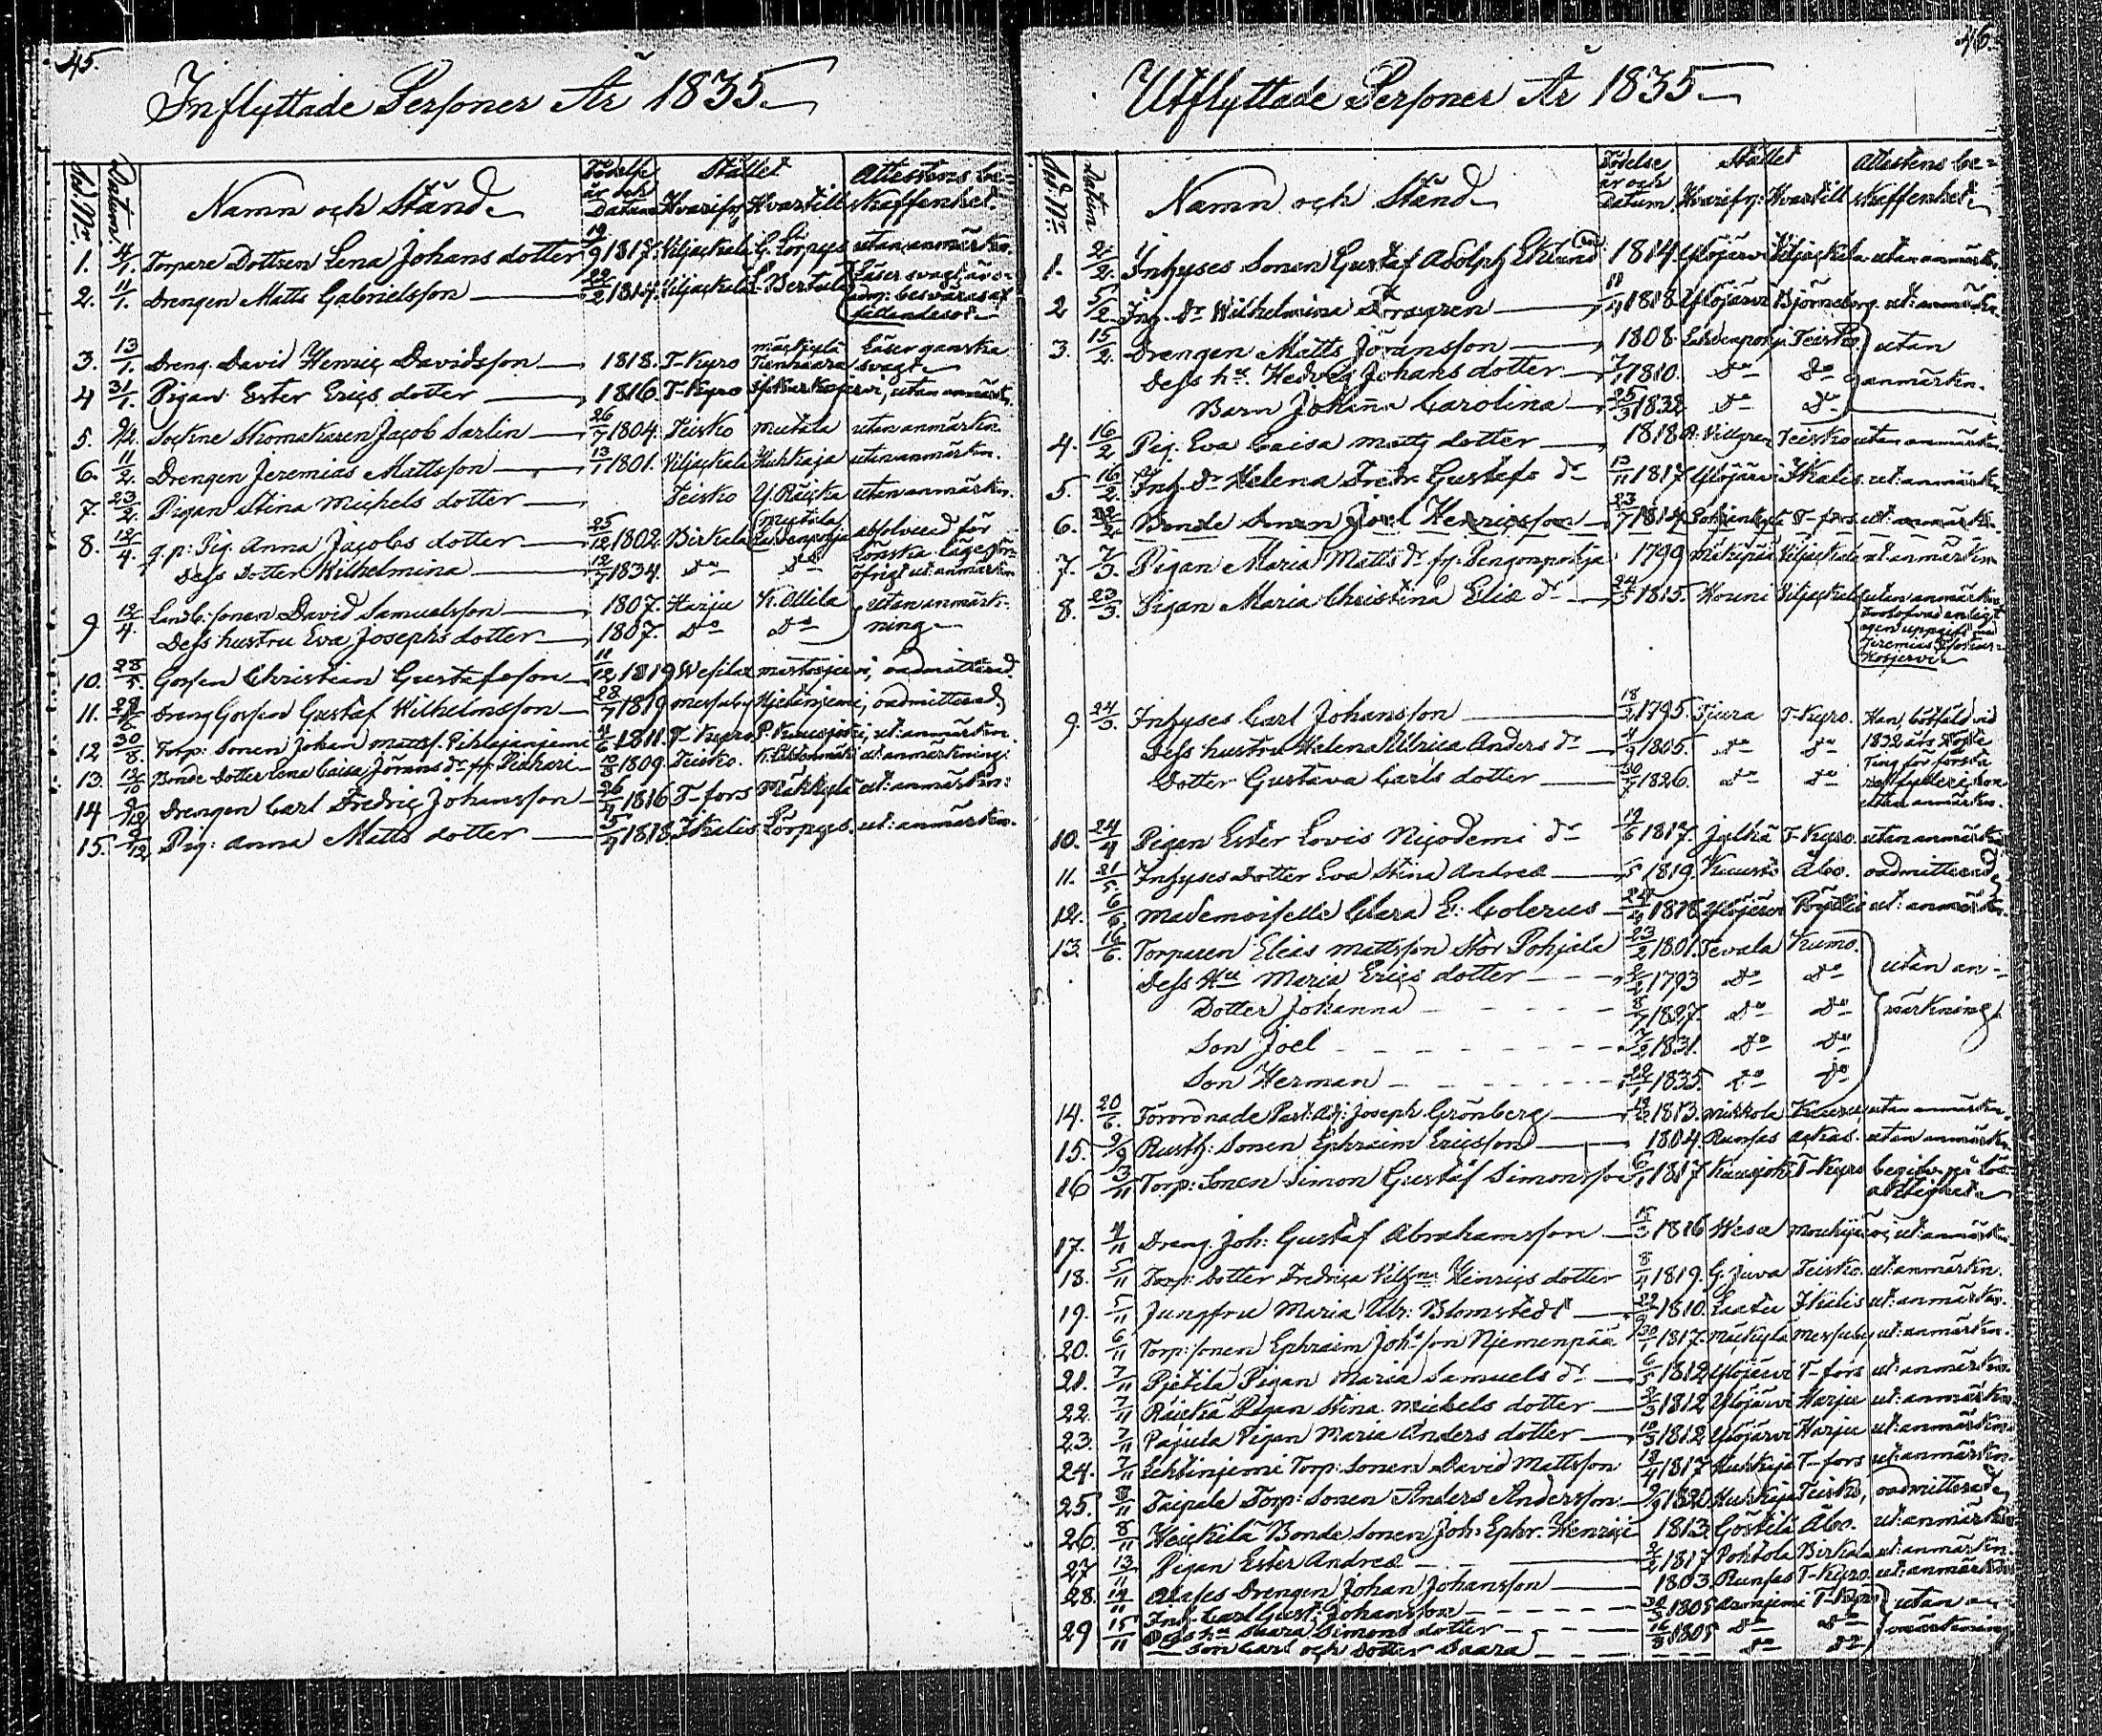 45.
Inflyttade Personer År 1835
Nod. No. Datum. Namn och Stånd Födelse år och Datum Stället Hvarifrn Hvartill Attestens beskaffenhet.
1. 4/1. Torpare Dottren Lena Johans dotter 19/9 1817. Viljackala G. Lörpys utan anmärkn.
2. 11/1. Drengen Matts Gabrielsson 22/2 1814. Viljackala L. Bertula Läser svagt,
besväras af
fallandesot
3. 13/1. Dreng. David Henric Davidsson 1818. T-Kyro Mäckylä Läser ganska
svagt
4 31/1. Pigan Ester Erics dotter 1816. T-Kyro utan anmärkn.
5. 9/2. Sockne Skomakaren Jacob Sarlin 26/7 1804. Teisko Mutala utan anmärkn.
6. 11/2. Drengen Jeremias Mattsson 13/1 1801. Viljackala Huhkaja utan anmärkn.
7. 23/2. Pigan Stina Michels dotter Teisko Y. Räickä utan anmärkn.
8. 12/4. q.p: Pig. Anna Jacobs dotter 25/12 1802. Birkala Mutala absolverad för
Dess Dotter Wilhelmina 12/7 1834. Do Do öfrigt ut: anmärkn
9 12/4. Landb: sonen David Samuelsson 1807. Harju K. Ollila utan anmärk-
Dess hustru Eva Josephs dotter 1807. Do Do ning
10. 28/5. Gossen Christian Gustafsson 11/12 1819 Wesilax oadmitterad
11. 28/6 Dreng Gossen Gustaf Wilhelmsson 28/7 1819 Messuby oadmitterad
12 30/8. Torp: Sonen Johan Matts. Pihlajaniemi 4/6 1811. T-Kyro ut: anmärkn.
13. 12/10 Bonde Dotter Lena Caisa Jörans dr 10/8 1809. Teisko. ut: anmärkning.
14 9/12 Drengen Carl Fredric Johansson 26/4 1816 T-fors Mäkkylä ut: anmärkn:
15. 9/12 Pig: Anna Matts dotter 5/7 1818. Ikalis Lörpys. ut: anmärkn.
46.
Utflyttade Personer År 1835
No. Datum Namn och Stånd Födelse år och Datum. Stället Hvarifrn: Hvartill Attestens beskaffenhet
1. 2/2. Inhyses Sonen Gustaf Adolph Eklund 1814. Ylöjärvi Viljackala utan anmärkn.
2 5/2. Inh. dr Wilhelmina 1818. Ylöjärvi Björneborg. ut: anmärkn.
3. 15/2. Drengen Matts Johansson 1808. Teisko utan
Dess hu. Hedvig Johans dotter 7/7 1810. Do Do anmärkn.
Barn Johanna Carolina 25/3 1832 Do Do
4. 16/2 Pig. Eva Caisa Matts dotter 1818 Teisko utan anmärkn.
5. 16/2. Inh. dr Helena Fredr. Gustafs dr 13/11 1817. Ylöjärvi Ikalis. ut: anmärkn.
6. 22/2. Bonde Sonen Joel Henricsson 23/7 1814 T-fors ut: anmärkn.
7. 7/3. Pigan Maria Matts dr 1799 Viljackala ut: anmärkn
8. 23/3. Pigan Maria Christina Elie dr 24/5 1815. Viljackala utan anmärkn.
Trolofvad enligt
egen uppgift med
Jeremias
9. 24/3. Inhyses Carl Johansson 18/2 1795. Tiura T-Kyro. Han bötfäld vid
Dess hustru Helena Ulrica Anders dr 4/9 1805. Do Do 1832 års
Dotter Gustava Carls dotter 30/7 1826. Do Do Ting för första
utan anmärkn.
10. 24/4 Pigan Ester Lovis Nicodemi dr 19/6 1817. T-Kyro. utan anmärkn
11. 21/5. Inhyses Dotter Eva Stina Andreæ /5 1819. Åbo. oadmitterad
12. 6/6. Mademoiselle Clara E: Colerus 24/4 1818 Ylöjärvi Pöytis ut: anmärkn.
13. 16/6. Torparen Elias Mattsson Stor Pohjala 23/2 1801. Tevala Kumo.
Dess Hu Maria Erics dotter 2/2 1793 Do Do utan an-
Dotter Johanna 8/7 1827. Do Do märkning
Son Joel 7/2 1831. Do Do
Son Herman 22/1 1835. Do Do
14. 20/6. Förordnade Past: Adj: Joseph Grönberg 19/3 1813. Mikkola utan anmärkn.
15. 9/9 Rusth: Sonen Ephraim Ericsson 1804. Runsas Ackas. utan anmärkn
16 3/11 Torp: Sonen Simon Gustaf Simonsson 6/1 1817. T-Kyro begifv. på lös-
aktighet
17. 4/11 Dreng. Joh: Gustaf Abrahamsson 15/3 1816 Wesa ut: anmärkn.
18. 5/11 Torp: Dotter Fredrica Vilhna. Hinrics dotter 8/4 1819. G. Juva Teisko. ut: anmärkn.
19. 5/11 Jungfru Maria Ulr: Blomstedt 22/9 1810. Laatu Ikalis ut: anmärkn.
20. 6/11 Torp: sonen Ephraim Joh:sson Njemenpää 30/1 1817. Mäckylä Messuby ut: anmärkn.
21. 7/11 Pjetilä Pigan Maria Samuels dr 6/5 1812 Ylöjärvi T-fors ut: anmärkn.
22. 7/11 Räickä Pigan Stina Michels dotter 2/3 1812 Ylöjärvi Harju ut: anmärkn
23. 7/11 Pajula Pigan Maria Anders dotter 10/3 1812 Ylöjärvi Harju ut: anmärkn
24. 7/11 Lehtinjemi Torp: Sonen David Mattsson 18/4 1817 Huhkaja T-fors ut: anmärkn.
25. 8/11 Taipale Torp: Sonen Anders Andersson 9/9 1820 Huhkaja Teisko, oadmitterad
26. 8/11 Heickilä Bonde Sonen Joh: Ephr. Henrici 1813. Göstilä Åbo. ut: anmärkn
27 13/11 Pigan Ester Andreæ 2/2 1817 Pohtola Birkala ut: anmärkn.
28. 14/11 Drengen Johan Johansson 1803. Runsas T-Kyro. ut: anmärkn
29 15/11 Inh. Carl Gust: Johansson 1805 T-Kyro utan an-
Dess hu Saara Simons dotter 16/8 1805 Do Do märkning
Son Carl och Dotter Saara Do Do